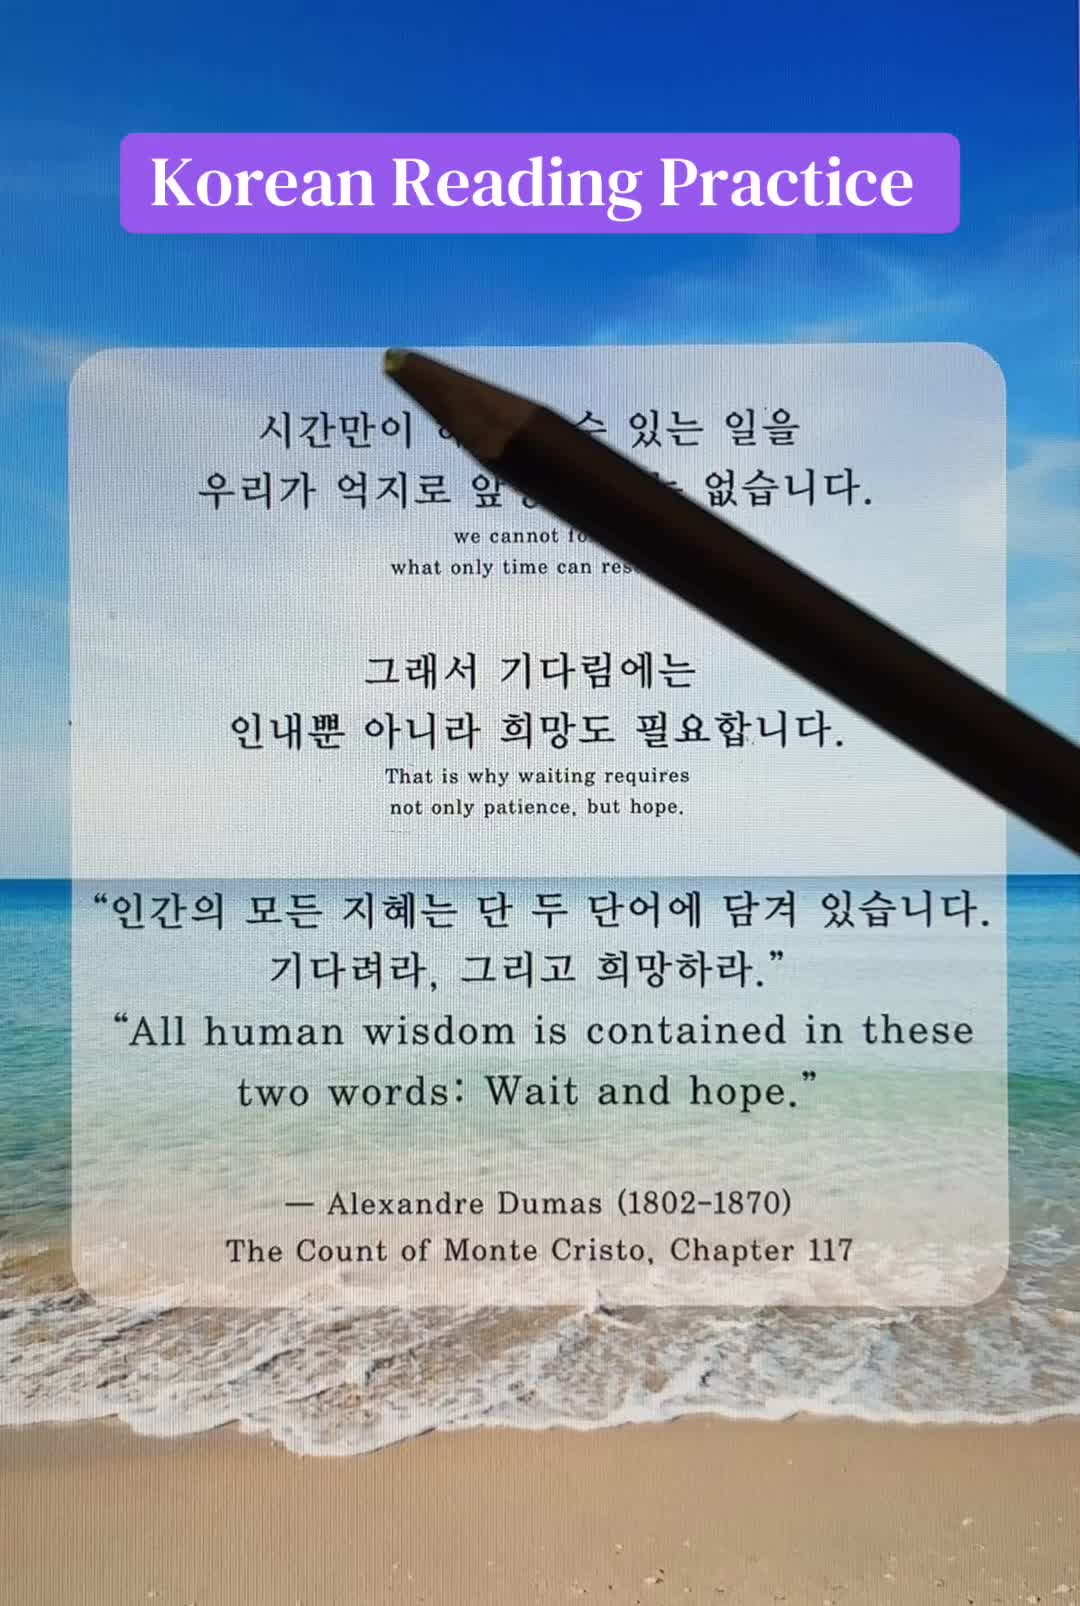 Korean Reading Practice
시간만이 있는 일을
우리가 억지로 없습니다.
we cannot
what only time can
그래서 기다림에는
인내뿐 아니라 희망도 필요합니다.
That is why waiting requires
not only patience, but hope.
“인간의 모든 지혜는 단 두 단어에 담겨 있습니다.
기다려라, 그리고 희망하라.”
“All human wisdom is contained in these
two words: Wait and hope.”
— Alexandre Dumas (1802-1870)
The Count of Monte Cristo, Chapter 117